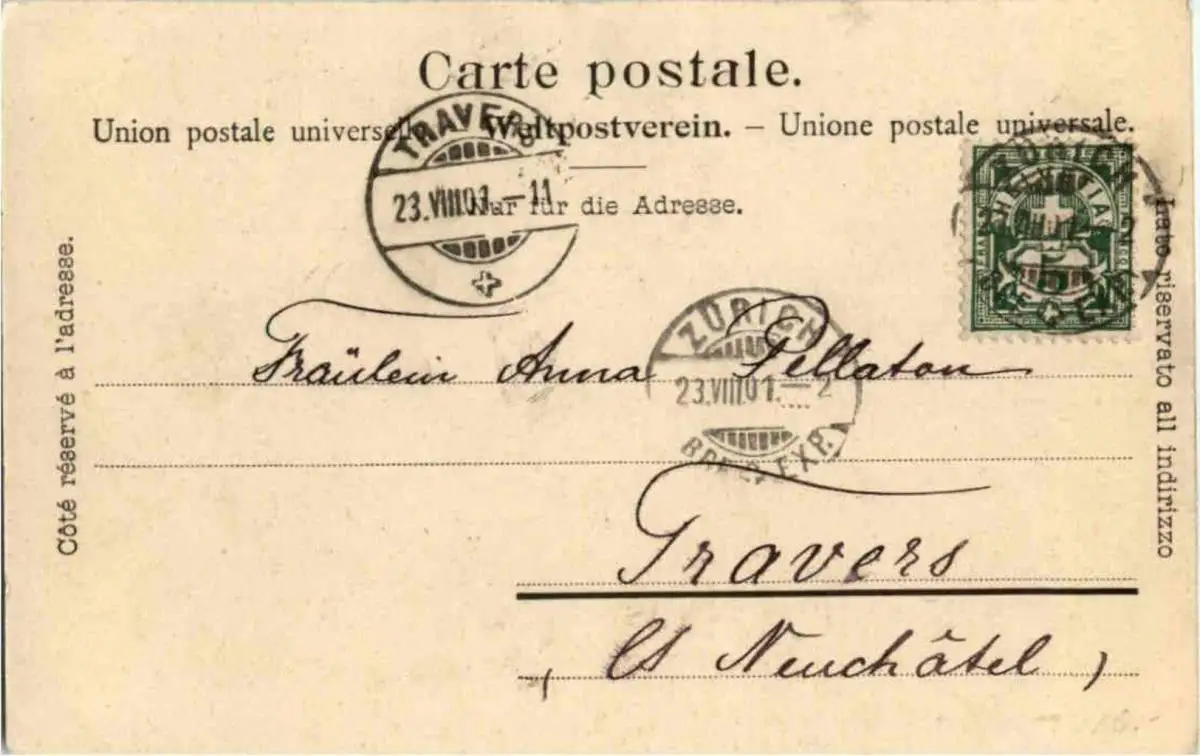 Carte postale.
Union postale universelle. – Weltpostverein. – Unione postale universale.
Nur für die Adresse.
Côté réservé à l'adresse.
Lato riservato all indirizzo
TRAVERS
23.VIII.01.–11
ZÜRICH
HELVETIA
FRANCO
5
ZÜRICH
23.VIII.01.–2
BRF. EXP.
Fräulein Anna Pellaton
Travers
(Ct Neuchâtel)